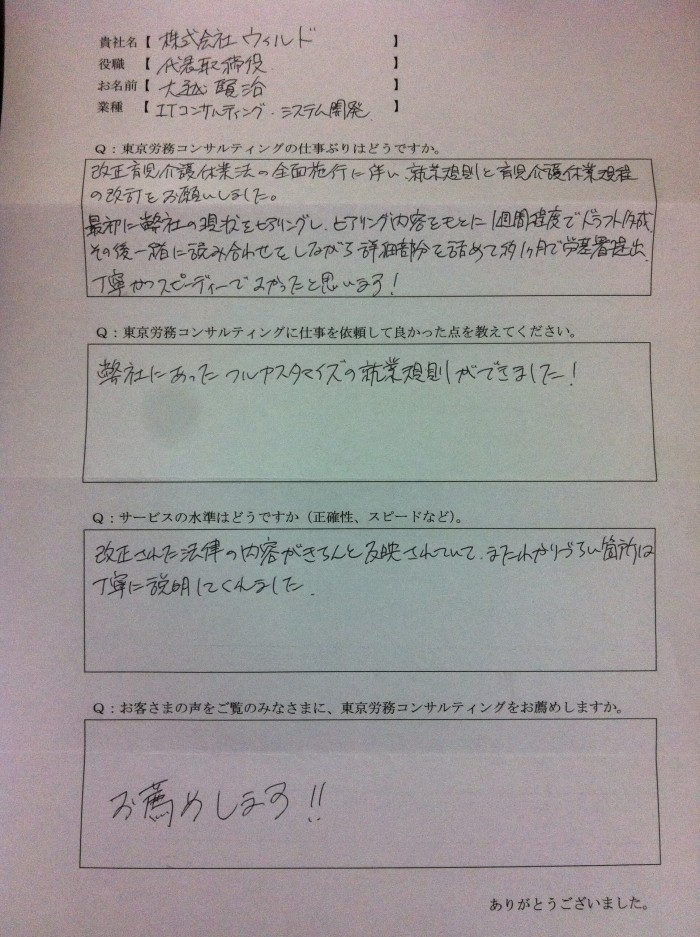 貴社名【 株式会社ウィルド 】
役職 【 代表取締役 】
お名前【 大 賢治 】
業種 【 ITコンサルティング・システム開発 】
Q：東京労務コンサルティングの仕事ぶりはどうですか。
改正育児介護休業法の全面施行に伴い、就業規則と育児介護休業規程
の改訂をお願いしました。
最初に弊社の現状をヒアリングし、ヒアリング内容をもとに1週間程度でドラフト作成、
その後一緒に読み合わせをしながら詳細部分を詰めて約1ヶ月で労基署提出。
丁寧かつスピーディーでよかったと思います！
Q：東京労務コンサルティングに仕事を依頼して良かった点を教えてください。
弊社にあったフルカスタマイズの就業規則ができました！
Q：サービスの水準はどうですか（正確性、スピードなど）。
改正された法律の内容がきちんと反映されていて、またわかりづらい箇所は
丁寧に説明してくれました。
Q：お客さまの声をご覧のみなさまに、東京労務コンサルティングをお薦めしますか。
お薦めします！！
ありがとうございました。